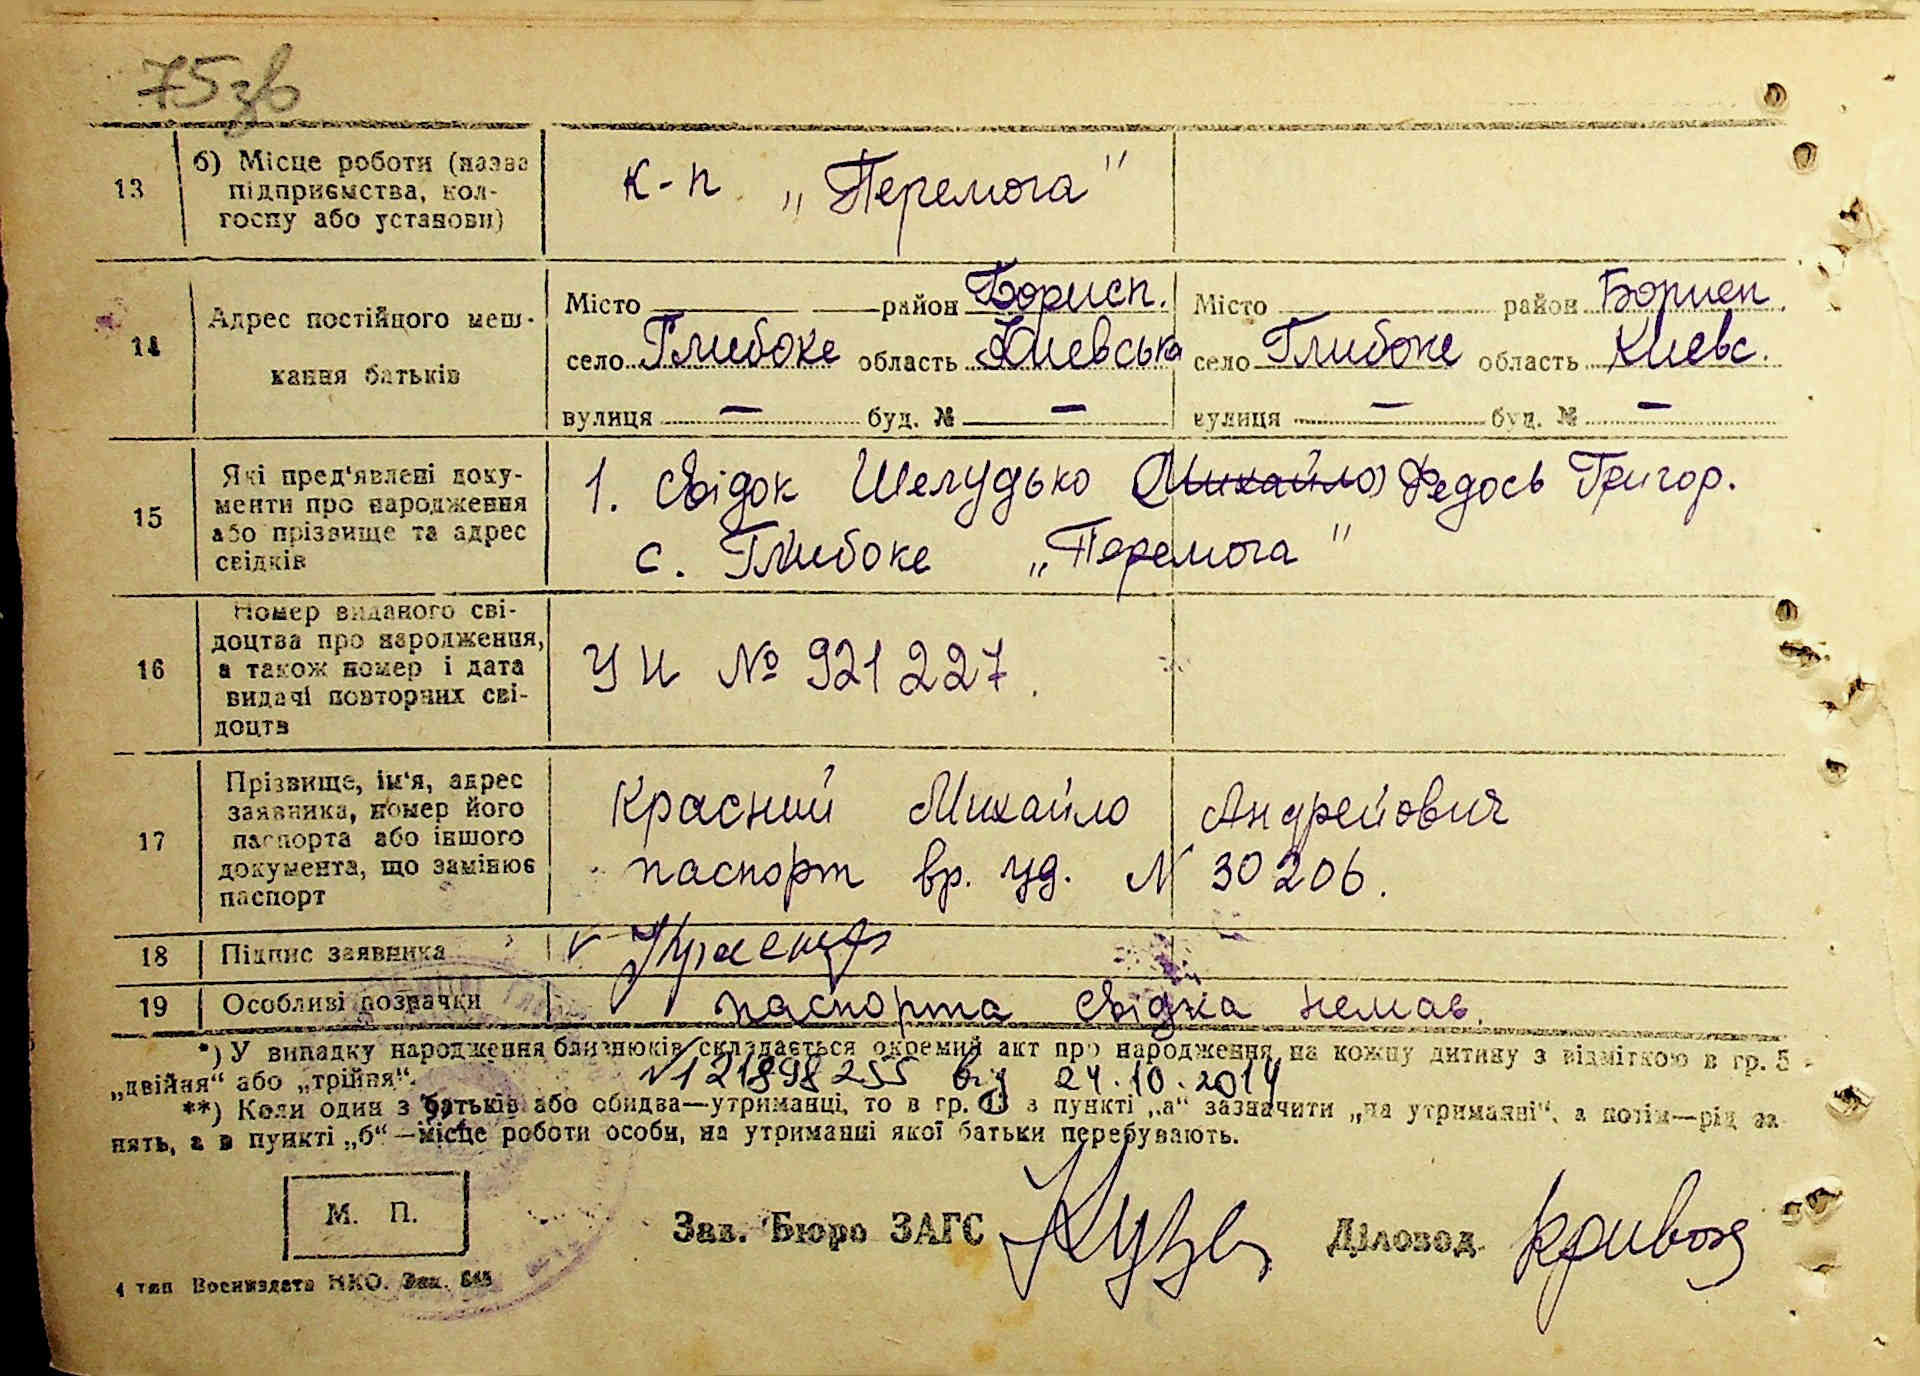 75 зв
13
б) Місце роботи (назва підприємства, колгоспу або установи)
к-п „Перемога"
14
Адрес постійного мешкання батьків
Місто — район Борисп.
село Глибоке область Киевська
вулиця — буд. № —
Місто район Борисп.
село Глибоке область Киевс.
вулиця — буд. № —
15
Які пред'явлені документи про народження або прізвище та адрес свідків
1. свідок Шелудько (Михайло) Федось Григор.
с. Глибоке „Перемога"
16
Номер виданого свідоцтва про народження, а також номер і дата видачі повторних свідоцтв
УИ № 921227.
17
Прізвище, ім'я, адрес заявника, номер його паспорта або іншого документа, що замінює паспорт
Красний Михайло Андрейович
паспорт вр. уд. N 30206.
18
Підпис заявника
19
Особливі позначки
паспорта свідка немає.
*) У випадку народження близнюків складається окремий акт про народження на кожну дитину з відміткою в гр. 5
„двійня“ або „трійня“.
N 121898255 від 24.10.2014
**) Коли один з батьків або обидва—утриманці, то в гр. 13 з пункті „а“ зазначити „на утриманні“, а потім—рід за-
нять, а в пункті „б“—місце роботи особи, на утриманні якої батьки перебувають.
М. П.
Зав. Бюро ЗАГС
Діловод
4 тип Воениздата НКО. Зак.